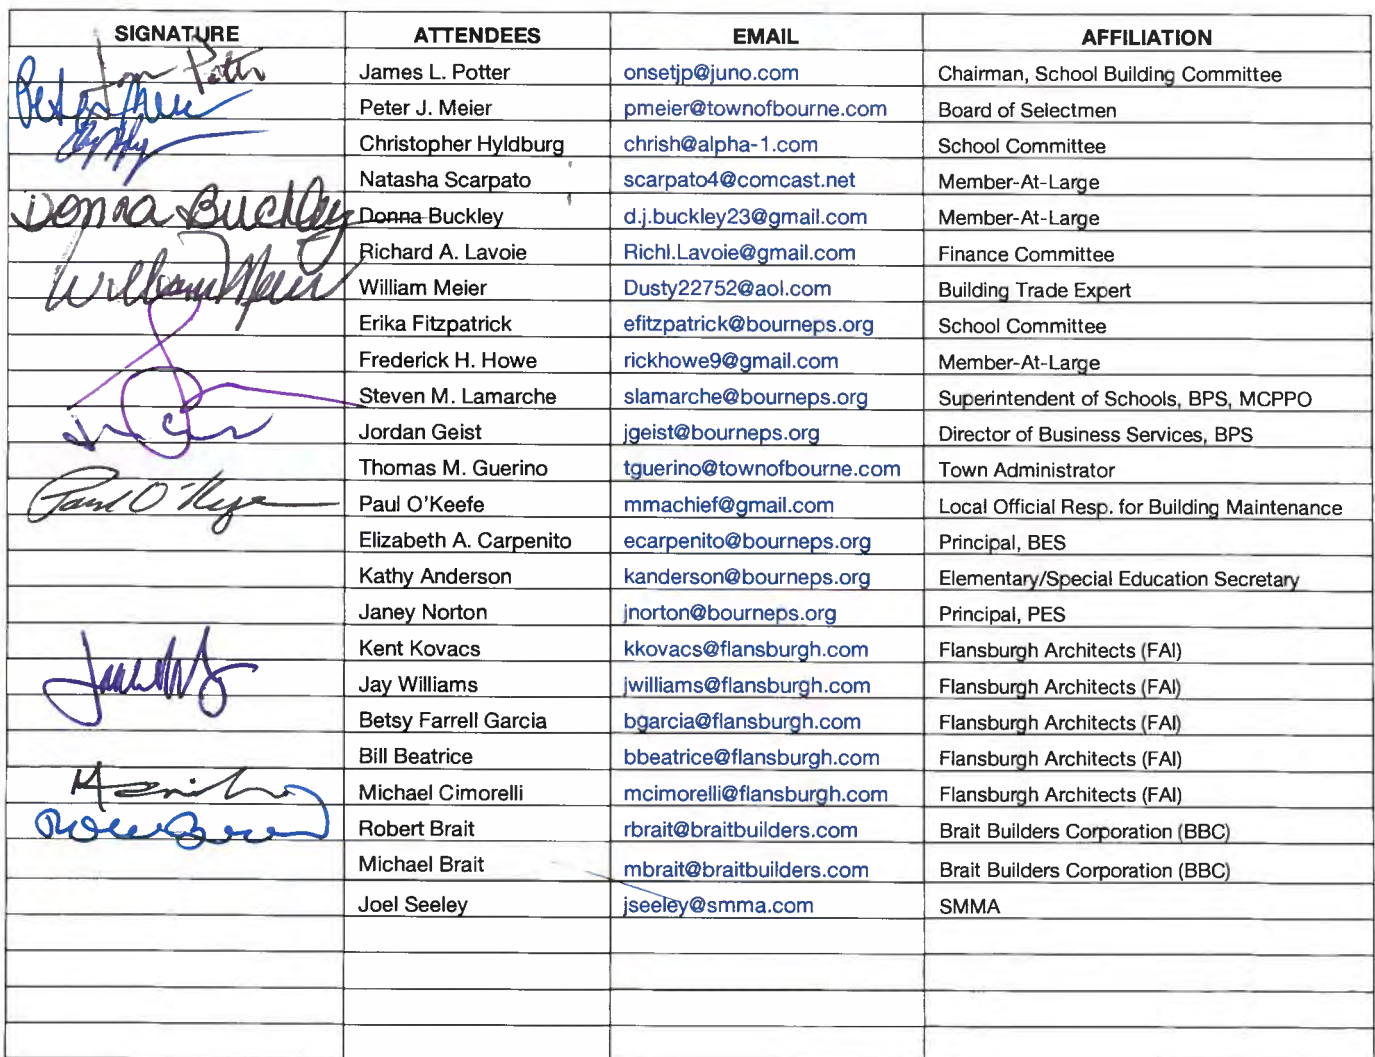 SIGNATURE ATTENDEES EMAIL AFFILIATION
James L. Potter onsetjp@juno.com Chairman, School Building Committee
Peter J. Meier pmeier@townofbourne.com Board of Selectmen
Christopher Hyldburg chrish@alpha-1.com School Committee
Natasha Scarpato scarpato4@comcast.net Member-At-Large
Donna Buckley Donna Buckley d.j.buckley23@gmail.com Member-At-Large
Richard A. Lavoie Richl.Lavoie@gmail.com Finance Committee
William Meier William Meier Dusty22752@aol.com Building Trade Expert
Erika Fitzpatrick efitzpatrick@bourneps.org School Committee
Frederick H. Howe rickhowe9@gmail.com Member-At-Large
Steven M. Lamarche slamarche@bourneps.org Superintendent of Schools, BPS, MCPPO
Jordan Geist jgeist@bourneps.org Director of Business Services, BPS
Thomas M. Guerino tguerino@townofbourne.com Town Administrator
Paul O'Keefe Paul O'Keefe mmachief@gmail.com Local Official Resp. for Building Maintenance
Elizabeth A. Carpenito ecarpenito@bourneps.org Principal, BES
Kathy Anderson kanderson@bourneps.org Elementary/Special Education Secretary
Janey Norton jnorton@bourneps.org Principal, PES
Kent Kovacs kkovacs@flansburgh.com Flansburgh Architects (FAI)
Jay Williams jwilliams@flansburgh.com Flansburgh Architects (FAI)
Betsy Farrell Garcia bgarcia@flansburgh.com Flansburgh Architects (FAI)
Bill Beatrice bbeatrice@flansburgh.com Flansburgh Architects (FAI)
Michael Cimorelli mcimorelli@flansburgh.com Flansburgh Architects (FAI)
Robert Brait rbrait@braitbuilders.com Brait Builders Corporation (BBC)
Michael Brait mbrait@braitbuilders.com Brait Builders Corporation (BBC)
Joel Seeley jseeley@smma.com SMMA